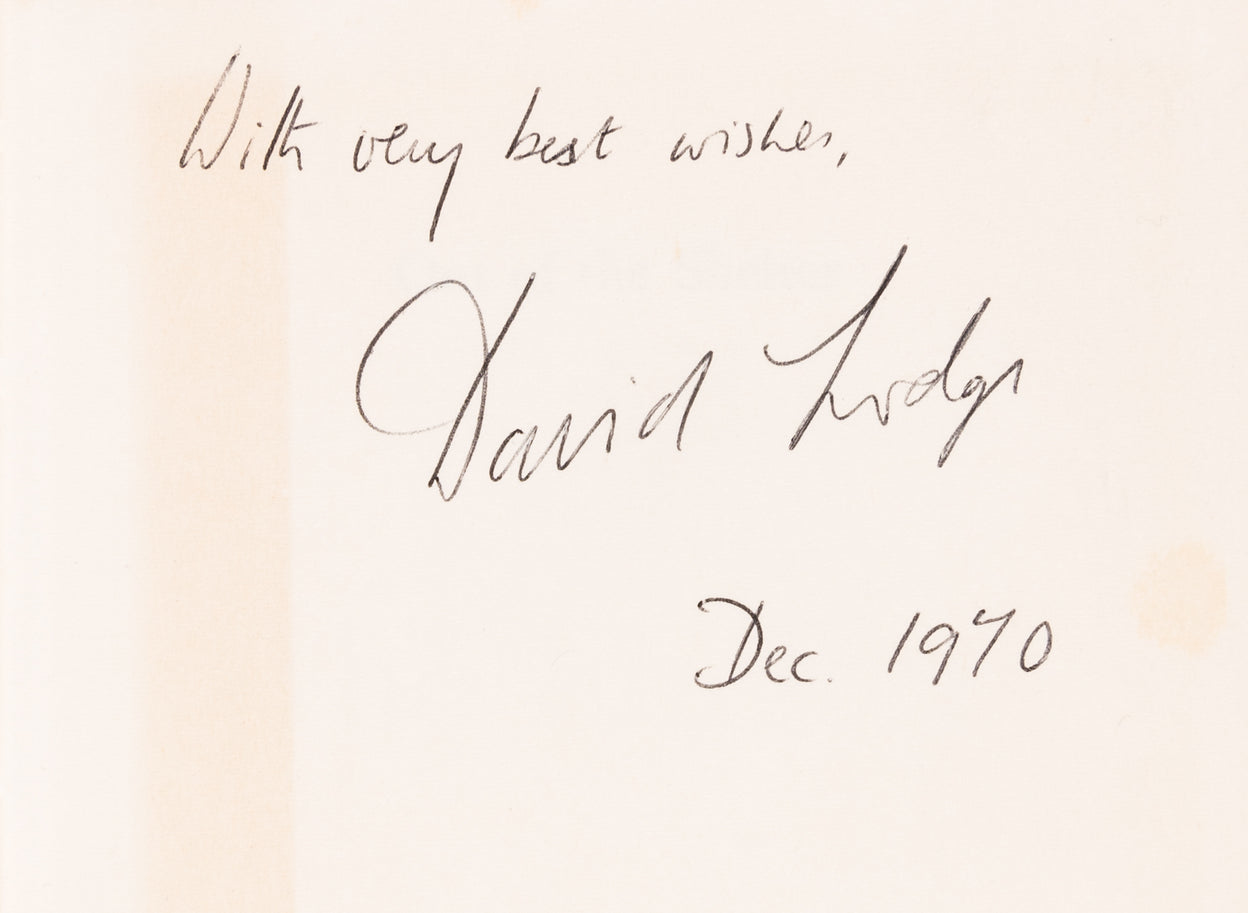 With very best wishes,
David Lodge
Dec. 1970